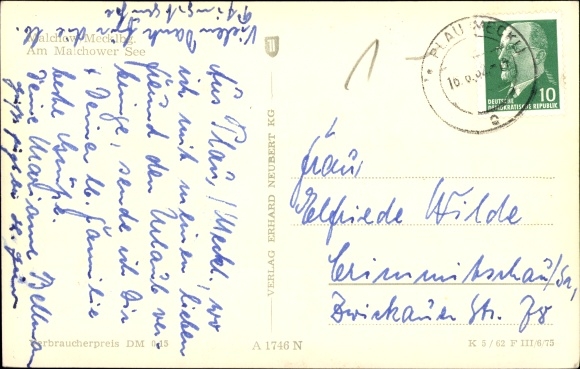 Malchow Mecklbg.
Am Malchower See
Vielen Dank für die lb.
Pfingstgrüße
Aus Plau, (Meckl.) wo
ich mit meinen lieben
Freund den Urlaub ver-
bringe, sende ich Dir
+ Deiner lb. Familie
beste Grüße.
Deine Marianne
VERLAG ERHARD NEUBERT KG
PLAU (MECKL)
DEUTSCHE
DEMOKRATISCHE REPUBLIK
10
Frau
Elfriede Wilde
Crimmitschau/Sa,
Zwickauer Str. 78
Verbraucherpreis DM 0,15
A 1746 N
K 5/62 F III/6/75